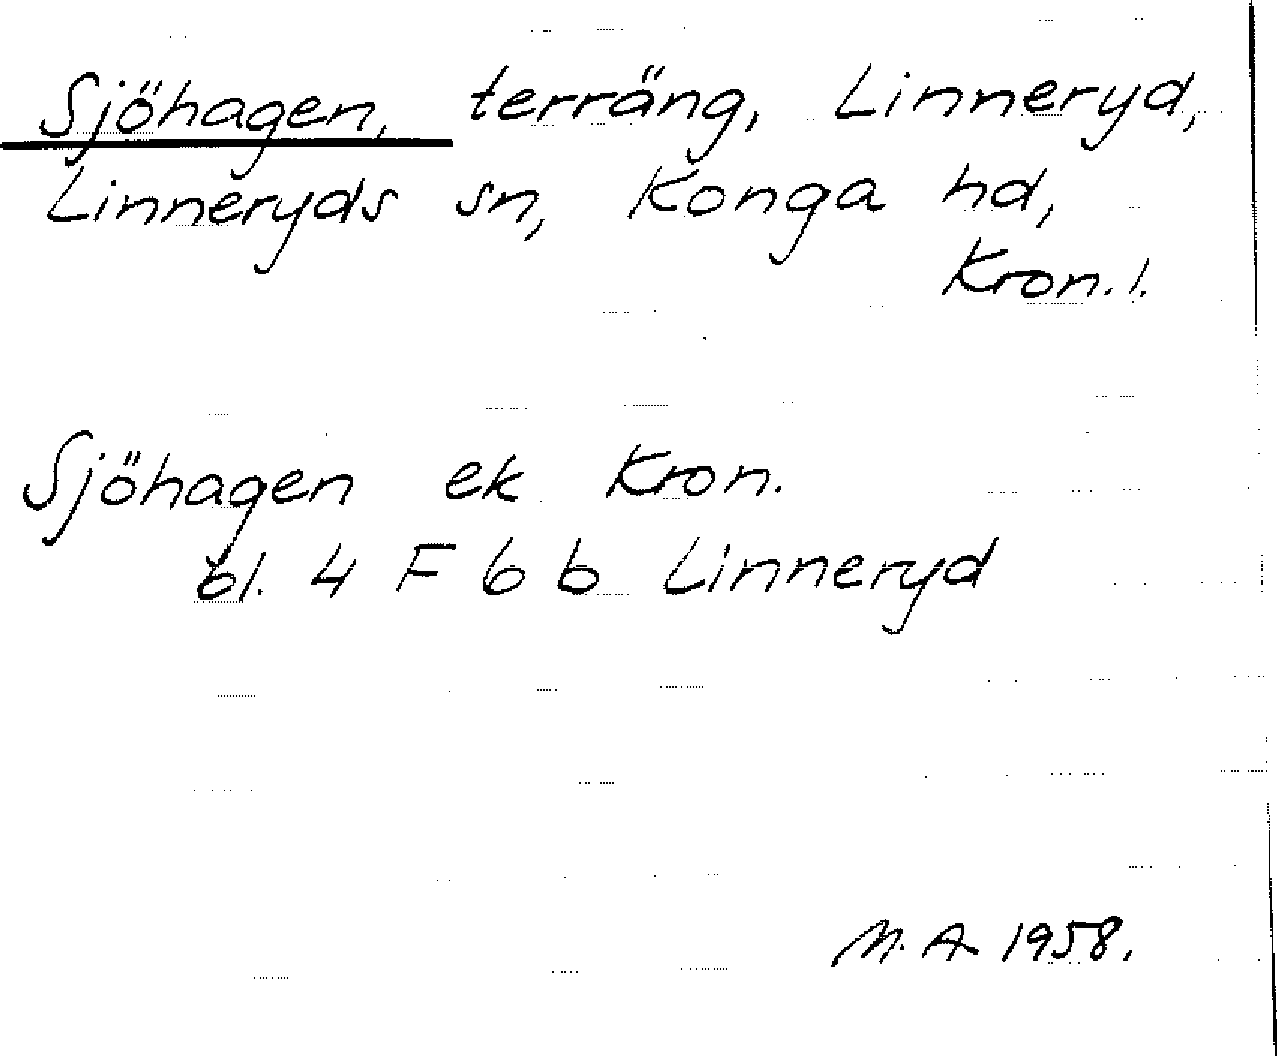 Sjöhagen, terräng, Linneryd,
Linneryds sn, Konga hd,
Kron. l.
Sjöhagen ek Kron.
bl. 4 F 6 b Linneryd
M. A 1958.